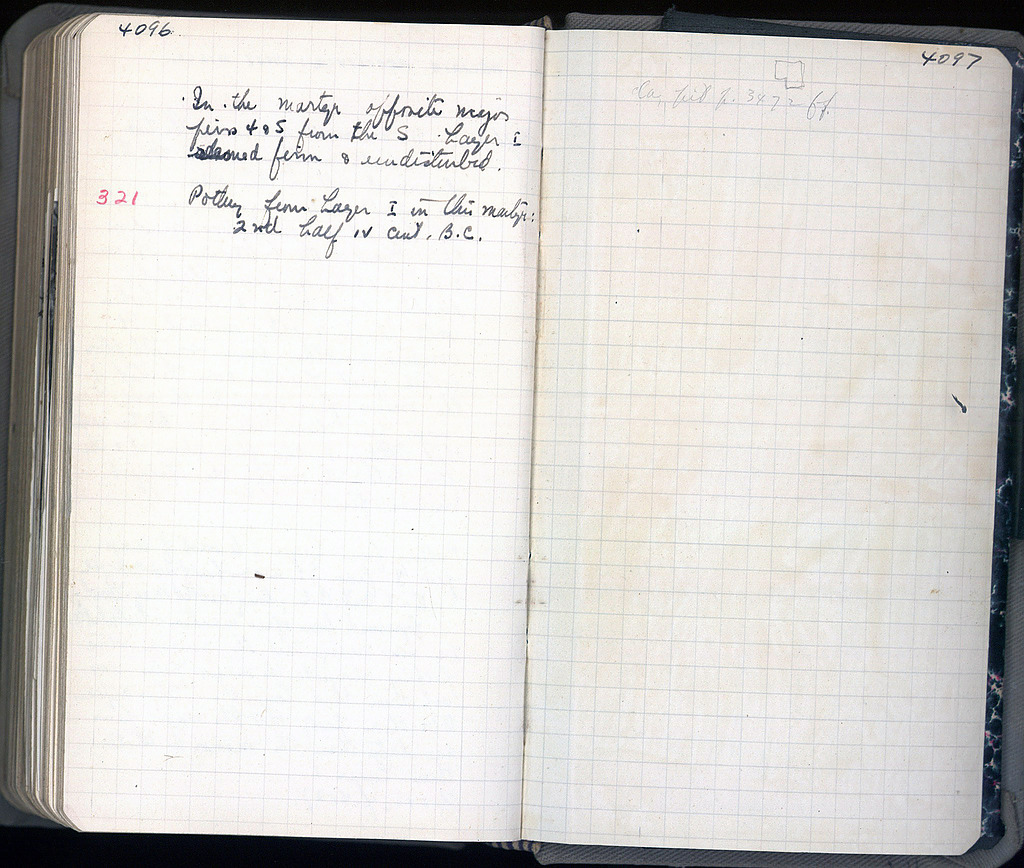 4096
In the martyr opposite major
piers 4 & 5 from the S Layer I
seemed firm & undisturbed.
321 Pottery from Layer I in this martyr:
2nd half IV cent. B.C.
4097
pit p. 3472 ff.